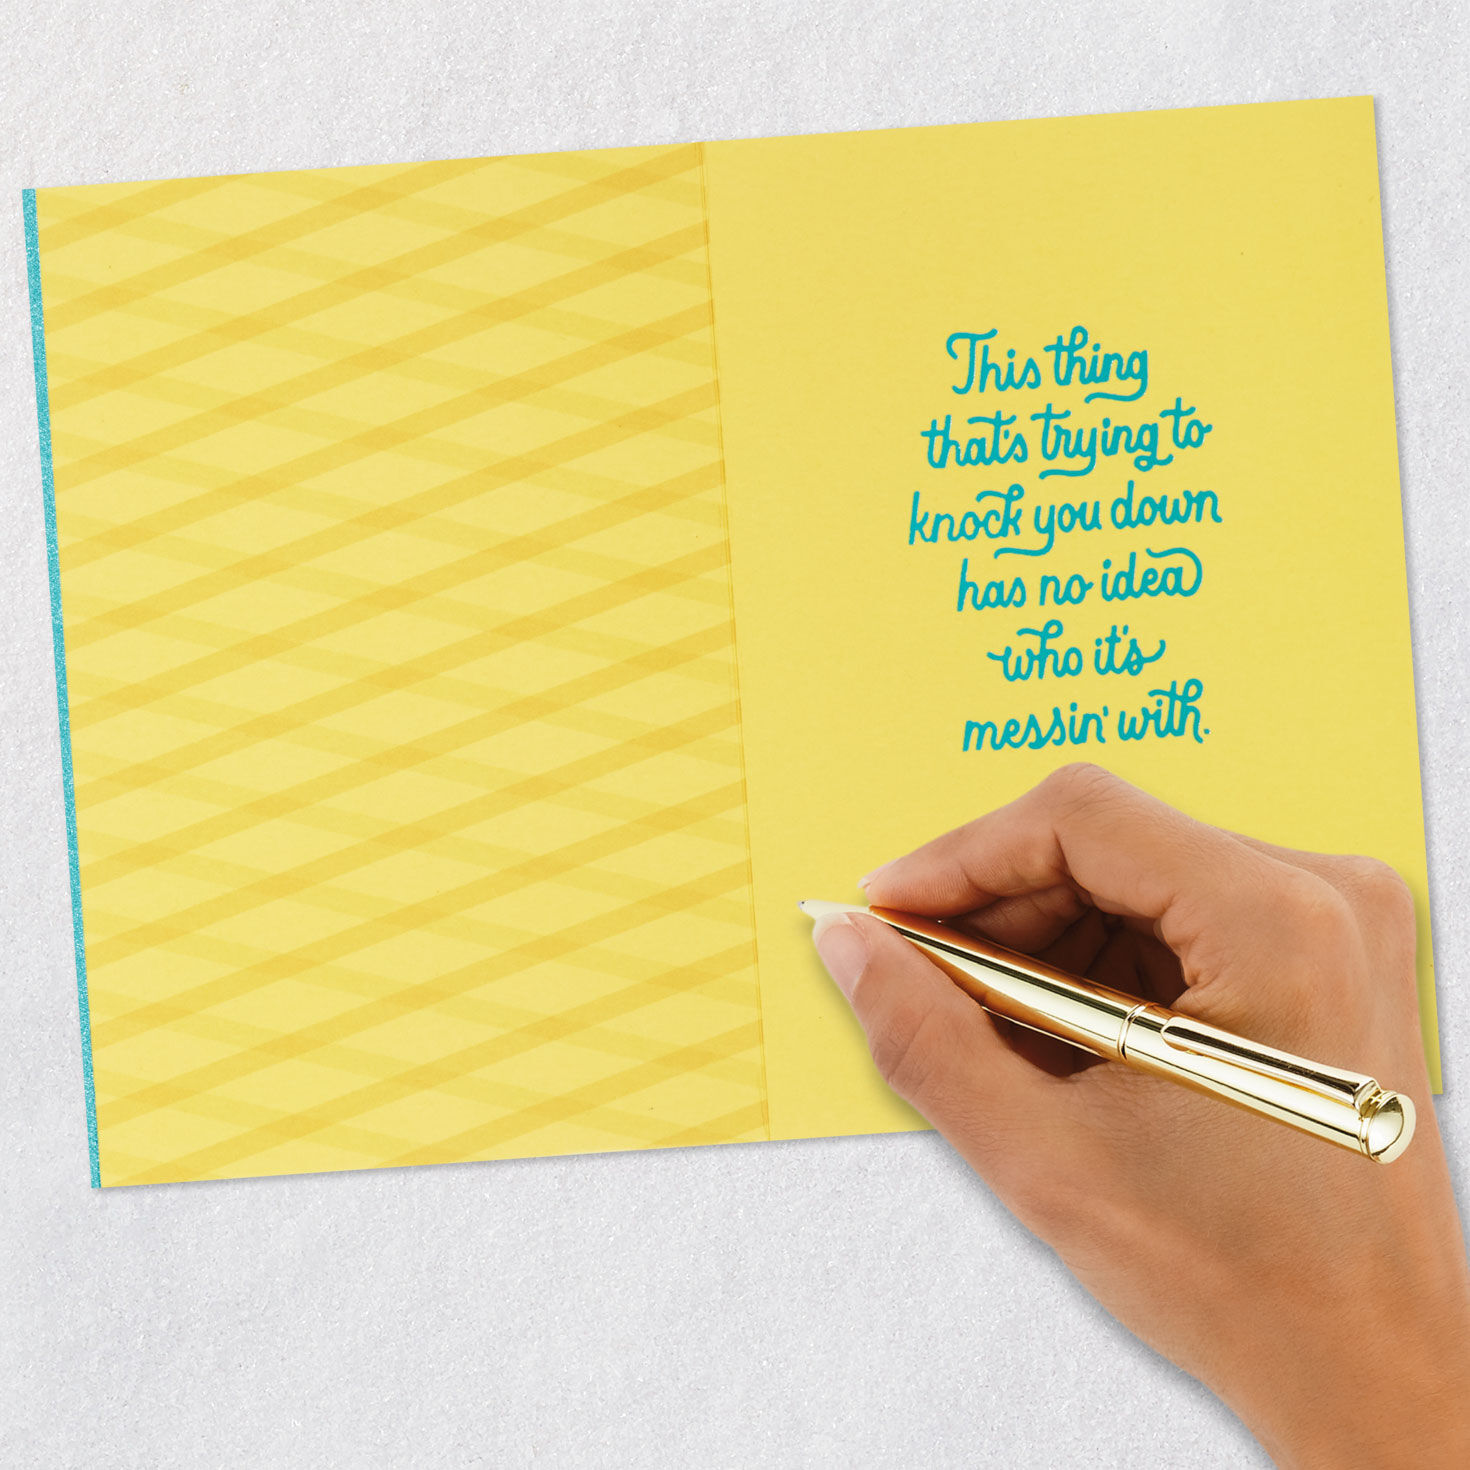 This thing
that's trying to
knock you down
has no idea
who it's
messin' with.